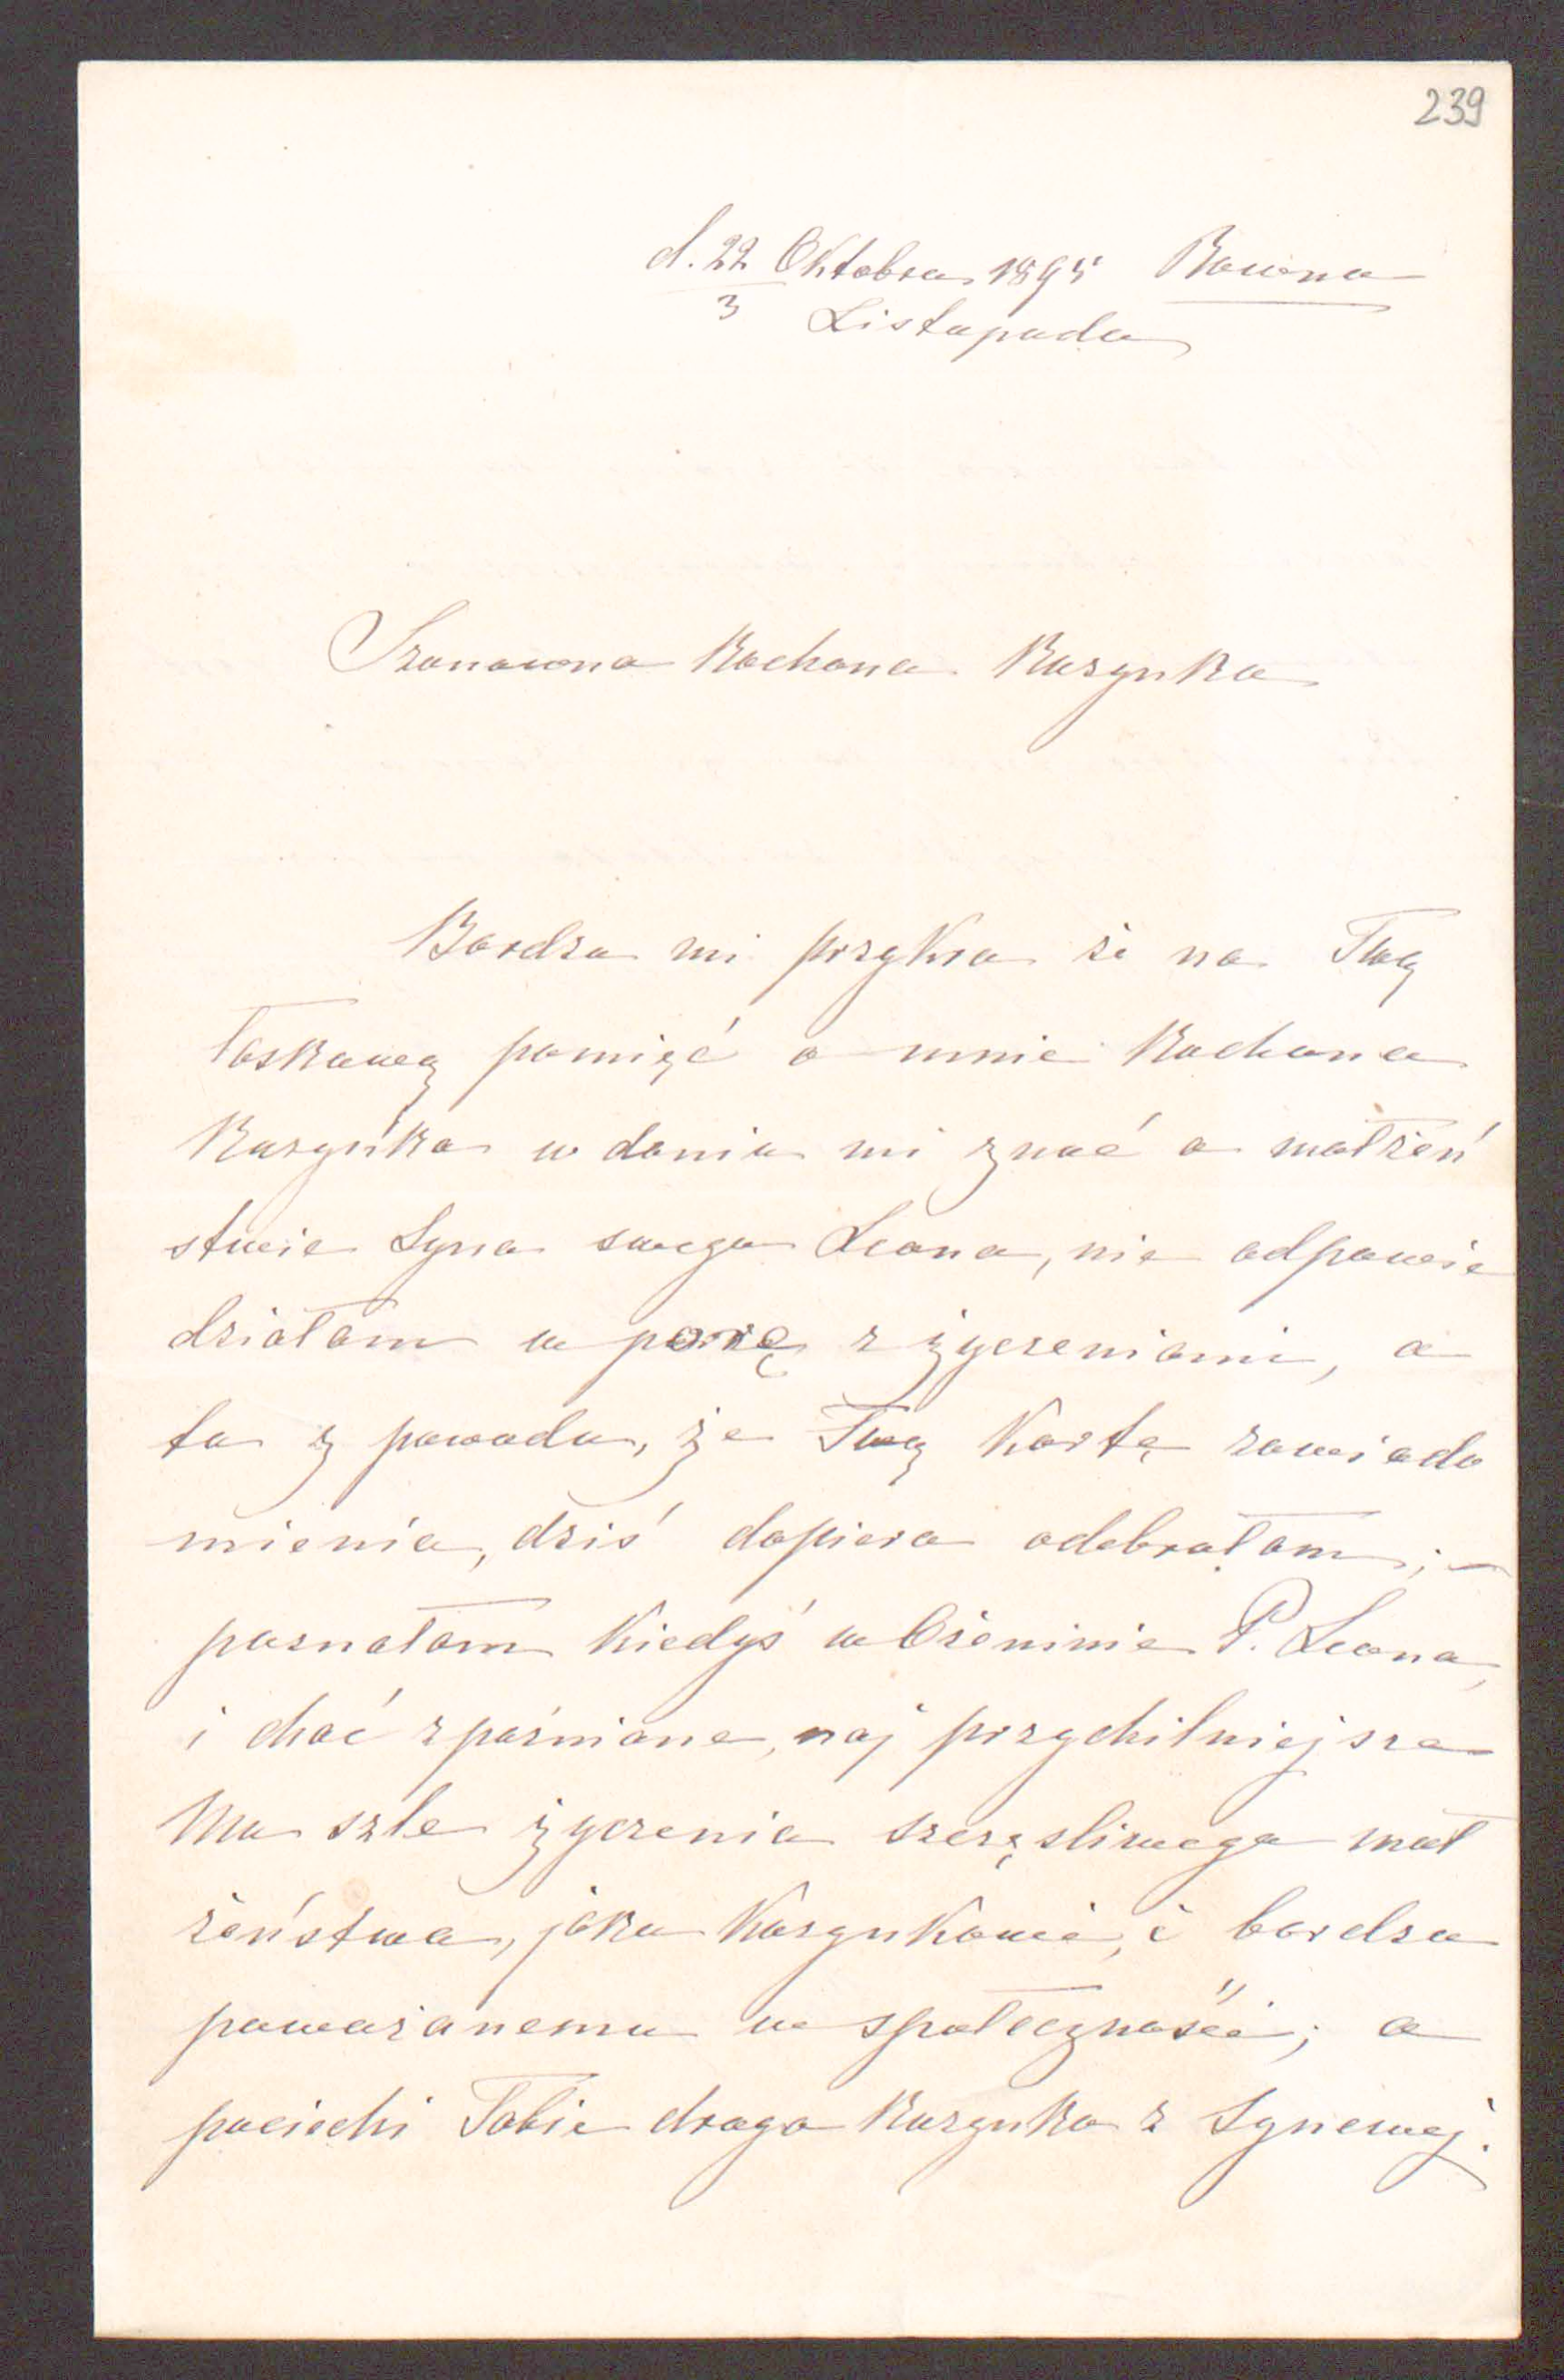 239
d. 22 Oktobra 1895 Rowno
3 Listopada
Szanowna Kochana Kuzynko
Bardzo mi przykro że na Twą
łaskawą pamięć o mnie Kochana
Kuzyńko w daniu mi znać o małżeń
stwie Syna swego Leona, nie odpowie
działam w porę z życzeniami, a
to z powodu, że Twą Kartę zawiado
mienia, dziś dopiero odebrałam; —
poznałam kiedyś w Ożeninie P. Leona,
i choć zpóźnione, naj przychilniejsze
Mu szle życzenia szczęsliwego mał
żeństwa, jako Kuzynkowi, i bardzo
poważanemu w społeczności; a
pociechi Tobie droga Kuzynko z Synowej.